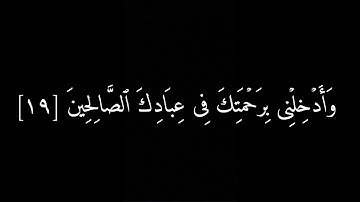 وَأَدۡخِلۡنِى بِرَحۡمَتِكَ فِى عِبَادِكَ ٱلصَّالِحِينَ [١٩]